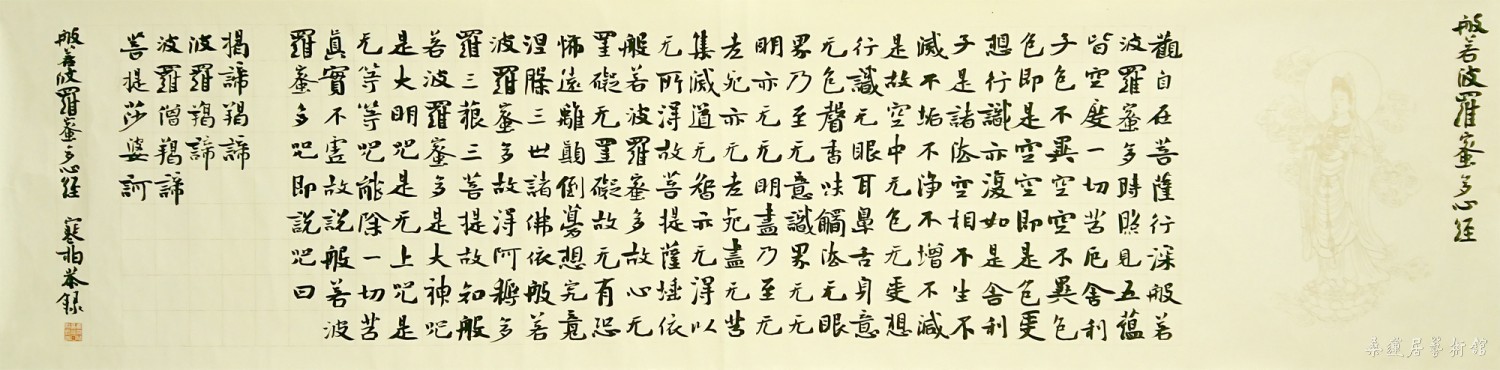 般若波羅蜜多心經
觀自在菩薩行深般若
波羅蜜多時照見五蘊
皆空度一切苦厄舍利
子色不異空空不異色
色即是空空即是色受
想行識亦復如是舍利
子是諸法空相不生不
滅不垢不淨不增不減
是故空中无色无受想
行識无眼耳鼻舌身意
无色聲香味觸法无眼
界乃至无意識界无无
明亦无无明盡乃至无
老死亦无老死盡无苦
集滅道无智亦无得以
无所得故菩提薩埵依
般若波羅蜜多故心无
罣礙无罣礙故无有恐
怖遠離顛倒夢想究竟
涅槃三世諸佛依般若
波羅蜜多故得阿耨多
羅三藐三菩提故知般
若波羅蜜多是大神咒
是大明咒是无上咒是
无等等咒能除一切苦
真實不虛故說般若波
羅蜜多咒即說咒曰
揭諦羯諦
波羅羯諦
波羅僧羯諦
菩提莎婆訶
般若波羅蜜多心經 寒柏恭錄
蓮居藝術館